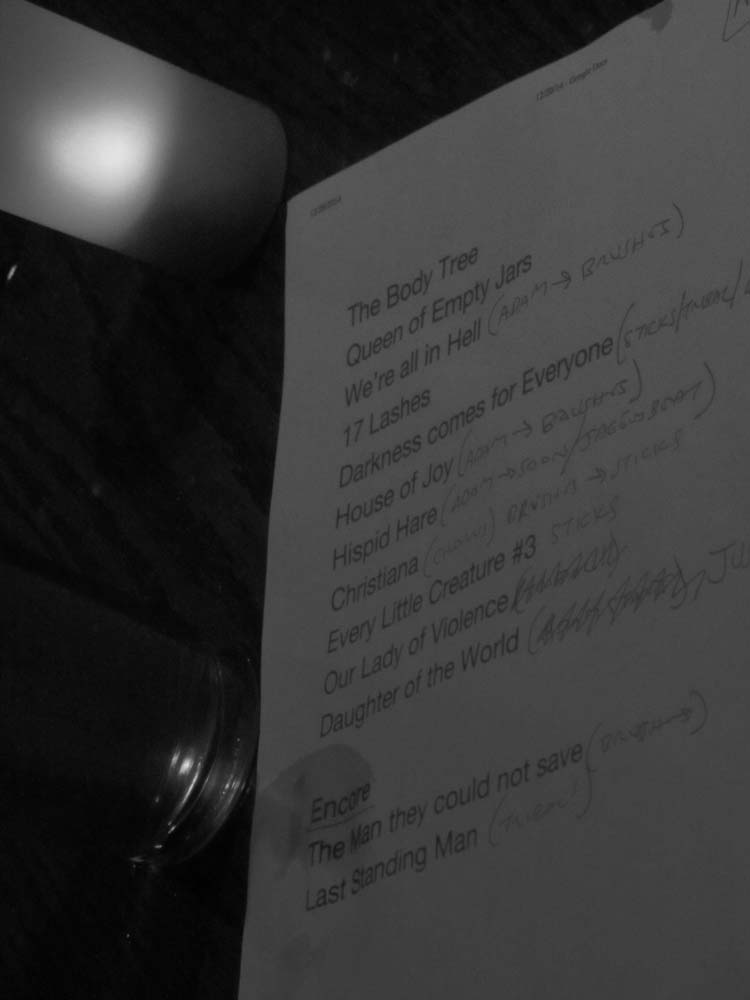 12/20/14 - Google Docs
The Body Tree
Queen of Empty Jars
We're all in Hell (ADAM → BRUSHES)
17 Lashes
Darkness comes for Everyone (STICKS/
House of Joy (ADAM → BRUSHES)
Hispid Hare (ADAM →
Christiana BRUSHES → STICKS
Every Little Creature #3 STICKS
Our Lady of Violence
Daughter of the World
Encore
The Man they could not save (BRUSHES)
Last Standing Man